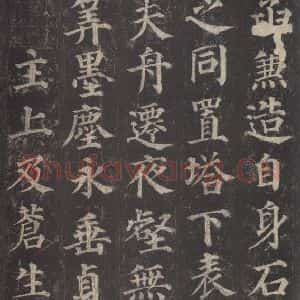 函兼造自身石
之同置塔下表
夫舟遷夜壑無
筭墨塵永垂貞
主上及蒼生
Shufawang.cn